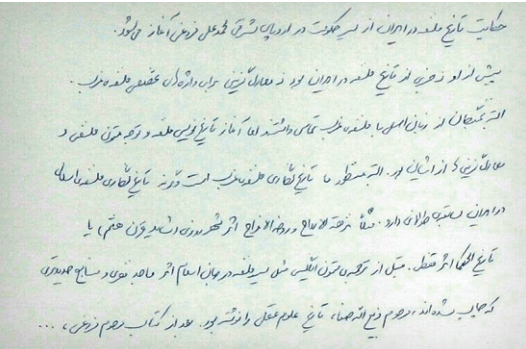 حکایت تاریخ فلسفه در ایران از سیر حکمت در اروپای مشرقی محمدعلی فروغی آغاز می‌شود.
پیش از او نه خبری از تاریخ فلسفه در ایران بود نه معادل‌گزینی برای واژه‌های تخصصی فلسفه غرب.
البته نخبگان از زبان اصل با فلسفه غرب تماس داشتند اما آغاز تاریخ‌نویسی فلسفه و ترجمه متون فلسفی و
معادل‌گزینی‌ها از ایشان بود. البته منظور ما تاریخ نگاری فلسفه غرب است وگرنه تاریخ نگاری فلسفه اسلامی
در ایران سابقه‌ی طولانی دارد. مثلاً نزهة الارواح و روضة الافراح اثر شهرزوری (سده قرن هفتم) یا
تاریخ الحکما اثر قفطی. قبل از ترجمه‌ی متون انگلیسی مثل سیر فلسفه در جهان اسلام اثر ماجد فخری و منابع جدیدتری
که چاپ شده‌اند، مرحوم ذبیح الله صفا، تاریخ علوم عقلی را نوشته بود. بعد از کتاب مرحوم فروغی، ...